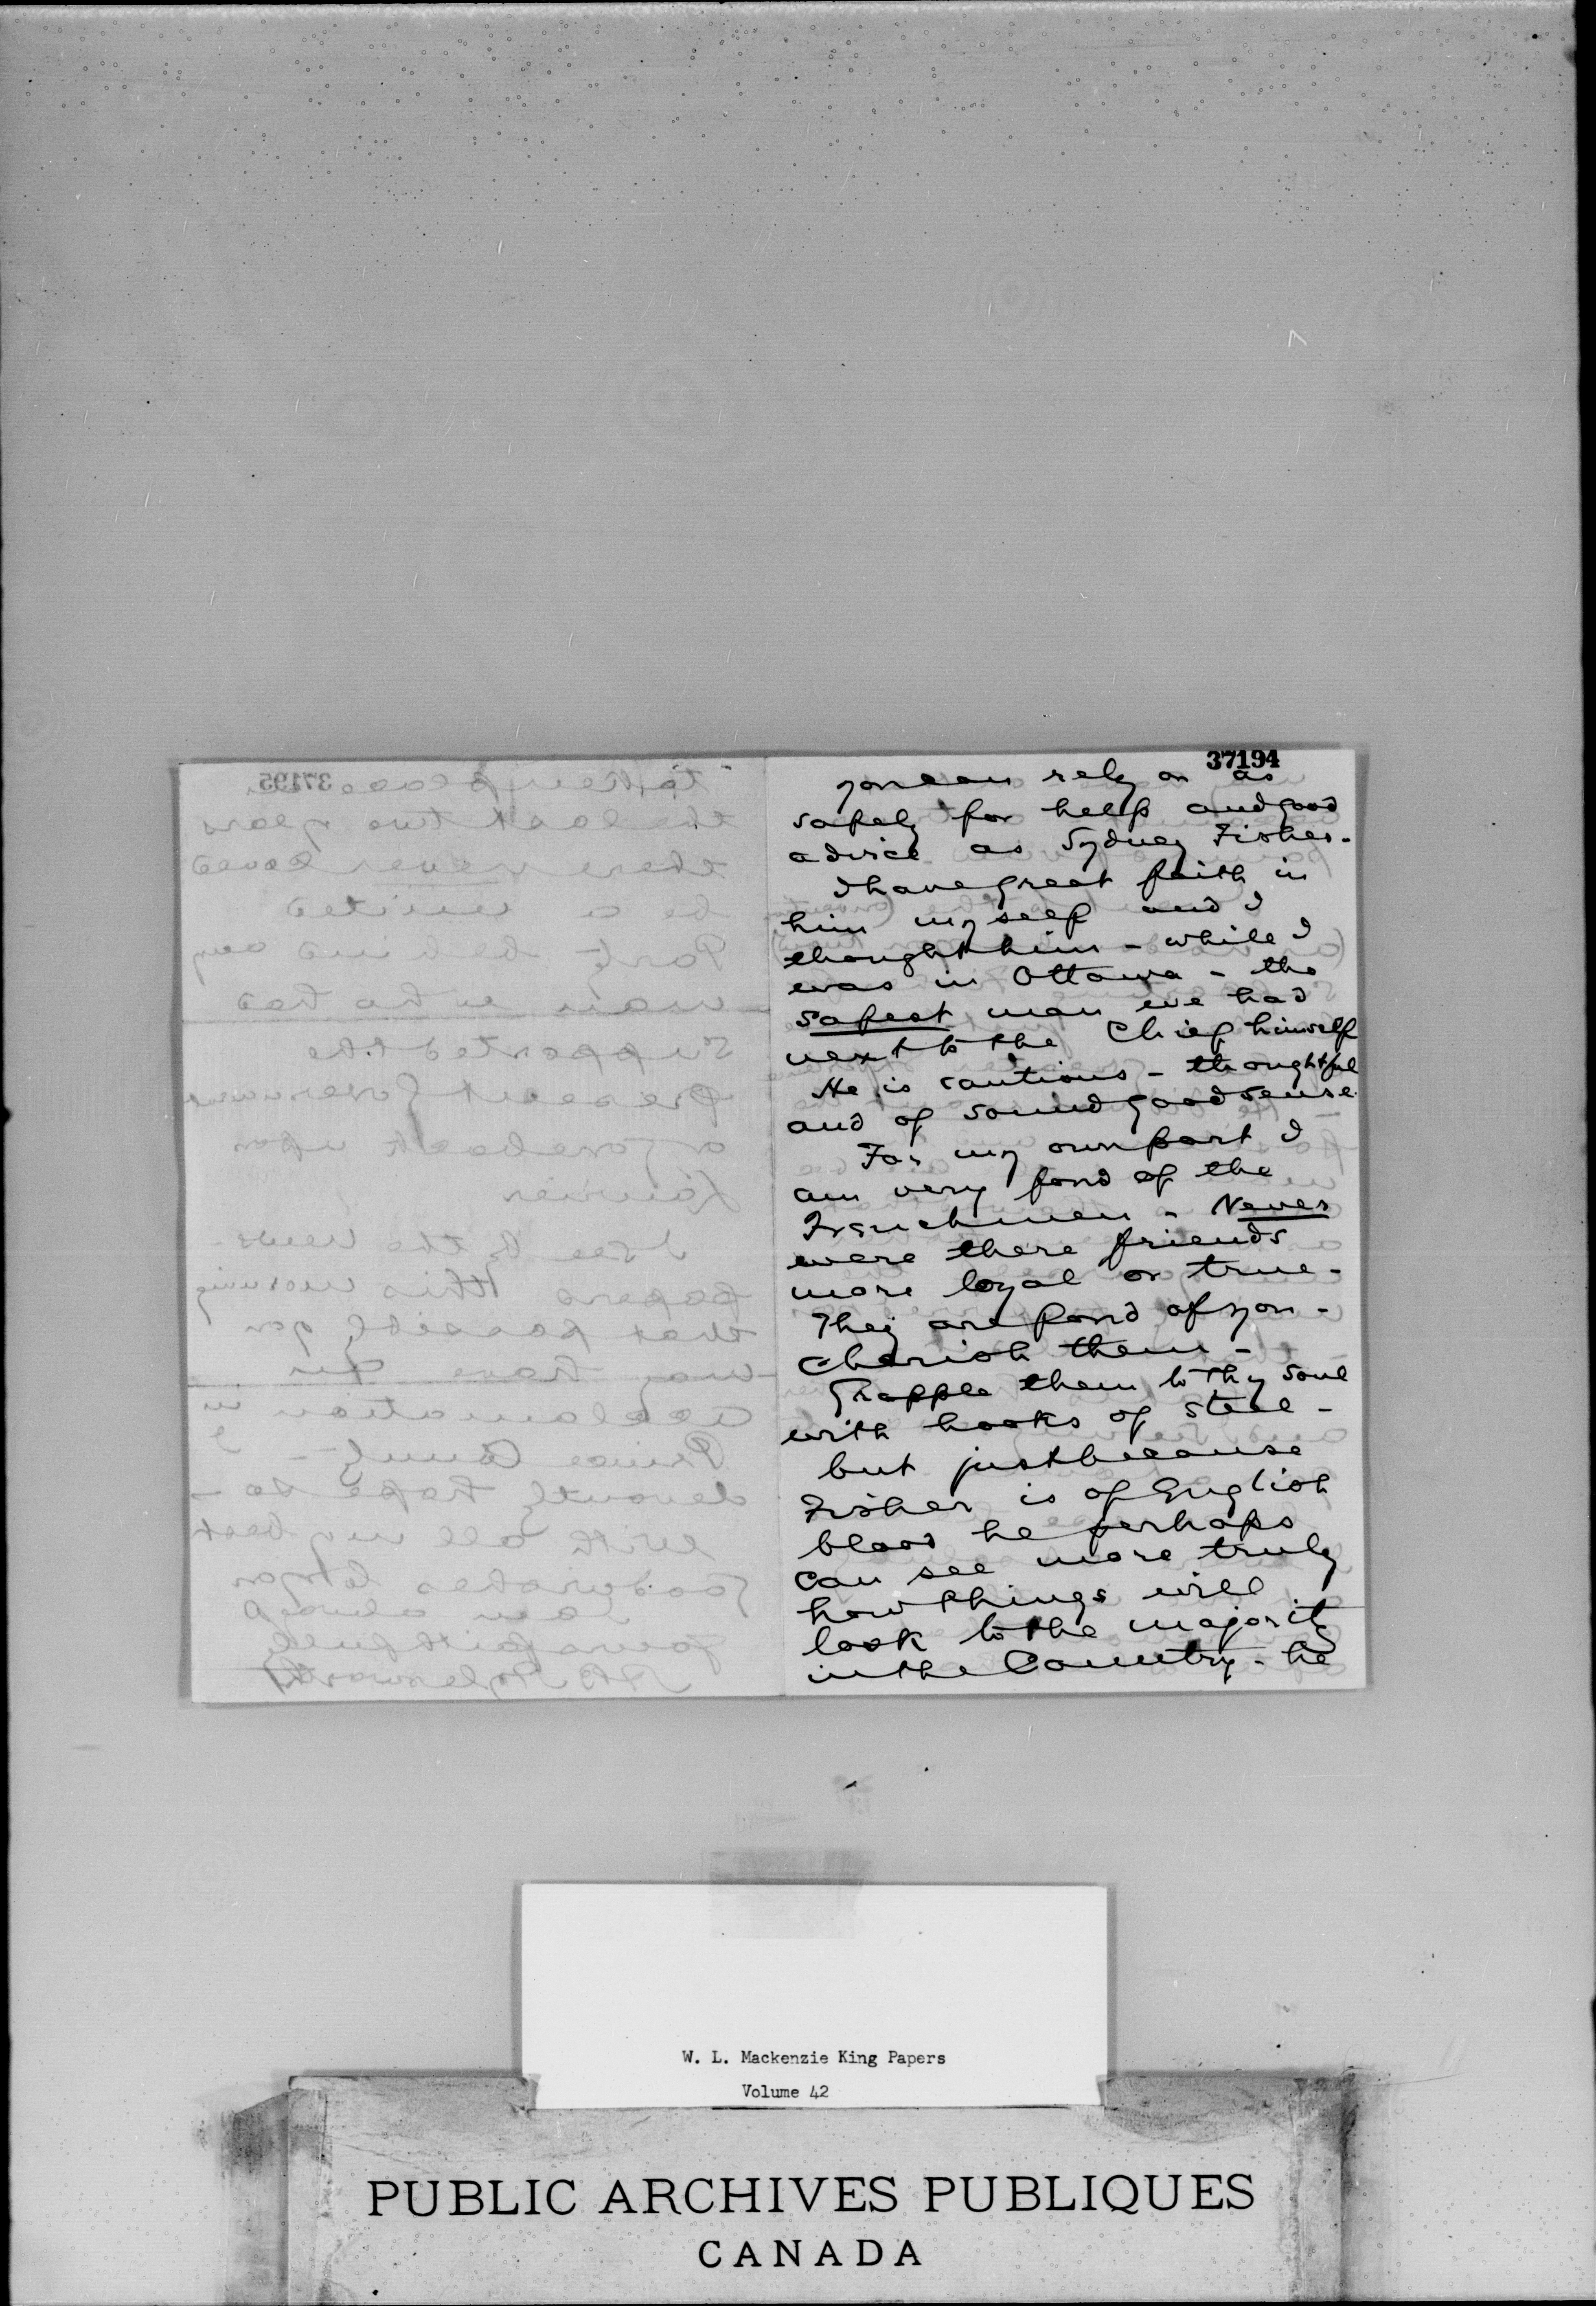 37194
you can rely on as
safely for help and good
advice as Sydney Fisher -
I have great faith in
him myself and I
thought him - while I
was in Ottawa - the
safest man we had
next to the Chief himself
He is cautious - thoughtful
and of sound good sense.
For my own part I
am very fond of the
Frenchmen - Never
were there friends
more loyal or true -
They are fond of you -
Cherish them -
Grapple them to thy soul
with hooks of steel -
but just because
Fisher is of English
blood he perhaps
can see more truly
how things will
look to the majority
in the Country - he
37195
the last two years
there never could
be a united
Party behind any
man who has
supported the
present Government
I see by the news-
papers this morning
that possibly you
may have an
acclamation in
Prince County - I
devoutly hope so -
with all my best
good wishes to you
I am always
yours faithfully
AB Aylesworth
W. L. Mackenzie King Papers
Volume 42
PUBLIC ARCHIVES PUBLIQUES
CANADA